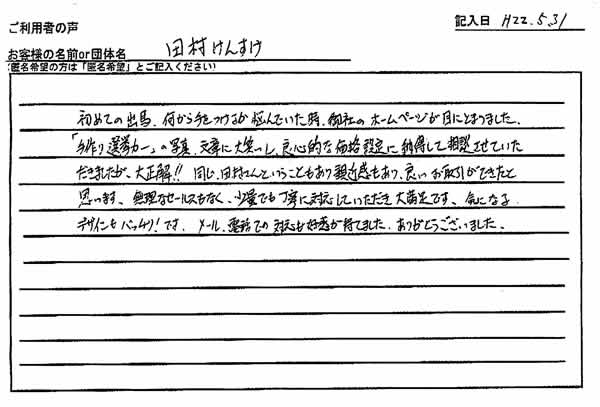 ご利用者の声
記入日 H22.5.31
お客様の名前or団体名 田村けんすけ
(匿名希望の方は「匿名希望」とご記入ください)
初めての出馬、何から手をつけるか悩んでいた時、御社のホームページが目にとまりました。
「手作り選挙カー」の写真、文章に大笑いし、良心的な価格設定に納得して相談させていた
だきましたが、大正解!! 同じ、田村さんということもあり親近感もあり、良いお取引ができたと
思います。無理なセールスもなく、少量でも丁寧に対応していただき大満足です。気になる
デザインもバッチリ!です。メール、電話での対応も好感が持てました。ありがとうございました。